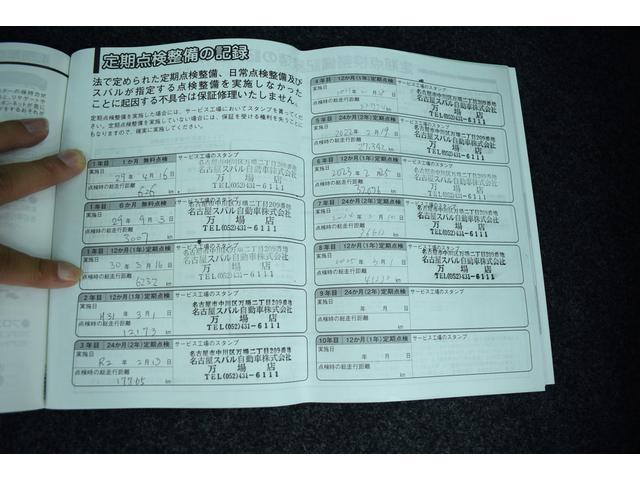 定期点検整備の記録
法で定められた定期点検整備、日常点検整備及び
スバルが指定する点検整備を実施しなかった
ことに起因する不具合は保証修理いたしません。
定期点検整備を実施した場合には、サービス工場においてスタンプを貰ってく
ださい。定期点検整備を実施していない場合には、保証を受ける権利を失うことに
もなりますので、確実に実施してください。
1年目 1か月 無料点検 サービス工場のスタンプ
実施日 29年 4月 16日
点検時の総走行距離
626 km
名古屋市中川区万場二丁目209番地
名古屋スバル自動車株式会社
万場店
TEL(052)431-6111
1年目 6か月 無料点検 サービス工場のスタンプ
実施日 29年 9月 3日
点検時の総走行距離
3007 km
名古屋市中川区万場二丁目209番地
名古屋スバル自動車株式会社
万場店
TEL(052)431-6111
1年目 12か月(1年)定期点検 サービス工場のスタンプ
実施日 30年 3月 16日
点検時の総走行距離
6232 km
名古屋市中川区万場二丁目209番地
名古屋スバル自動車株式会社
万場店
TEL(052)431-6111
2年目 12か月(1年)定期点検 サービス工場のスタンプ
実施日 H31年 3月 1日
点検時の総走行距離
12173 km
名古屋市中川区万場二丁目209番地
名古屋スバル自動車株式会社
万場店
TEL(052)431-6111
3年目 24か月(2年)定期点検 サービス工場のスタンプ
実施日 R2年 2月 13日
点検時の総走行距離
17765 km
名古屋市中川区万場二丁目209番地
名古屋スバル自動車株式会社
万場店
TEL(052)431-6111
4年目 12か月(1年)定期点検 サービス工場のスタンプ
実施日
点検時の総走行距離
名古屋市中川区万場二丁目209番地
名古屋スバル自動車株式会社
万場店
TEL(052)431-6111
5年目 24か月(2年)定期点検 サービス工場のスタンプ
実施日 2022年 2月 19日
点検時の総走行距離
27392 km
名古屋市中川区万場二丁目209番地
名古屋スバル自動車株式会社
万場店
TEL(052)431-6111
6年目 12か月(1年)定期点検 サービス工場のスタンプ
実施日 2023年 2月 25日
点検時の総走行距離
32626 km
名古屋市中川区万場二丁目209番地
名古屋スバル自動車株式会社
万場店
TEL(052)431-6111
7年目 24か月(2年)定期点検 サービス工場のスタンプ
実施日
点検時の総走行距離
名古屋市中川区万場二丁目209番地
名古屋スバル自動車株式会社
万場店
TEL(052)431-6111
8年目 12か月(1年)定期点検 サービス工場のスタンプ
実施日
点検時の総走行距離
名古屋市中川区万場二丁目209番地
名古屋スバル自動車株式会社
万場店
TEL(052)431-6111
9年目 24か月(2年)定期点検 サービス工場のスタンプ
実施日 年 月 日
点検時の総走行距離
km
10年目 12か月(1年)定期点検 サービス工場のスタンプ
実施日 年 月 日
点検時の総走行距離
km